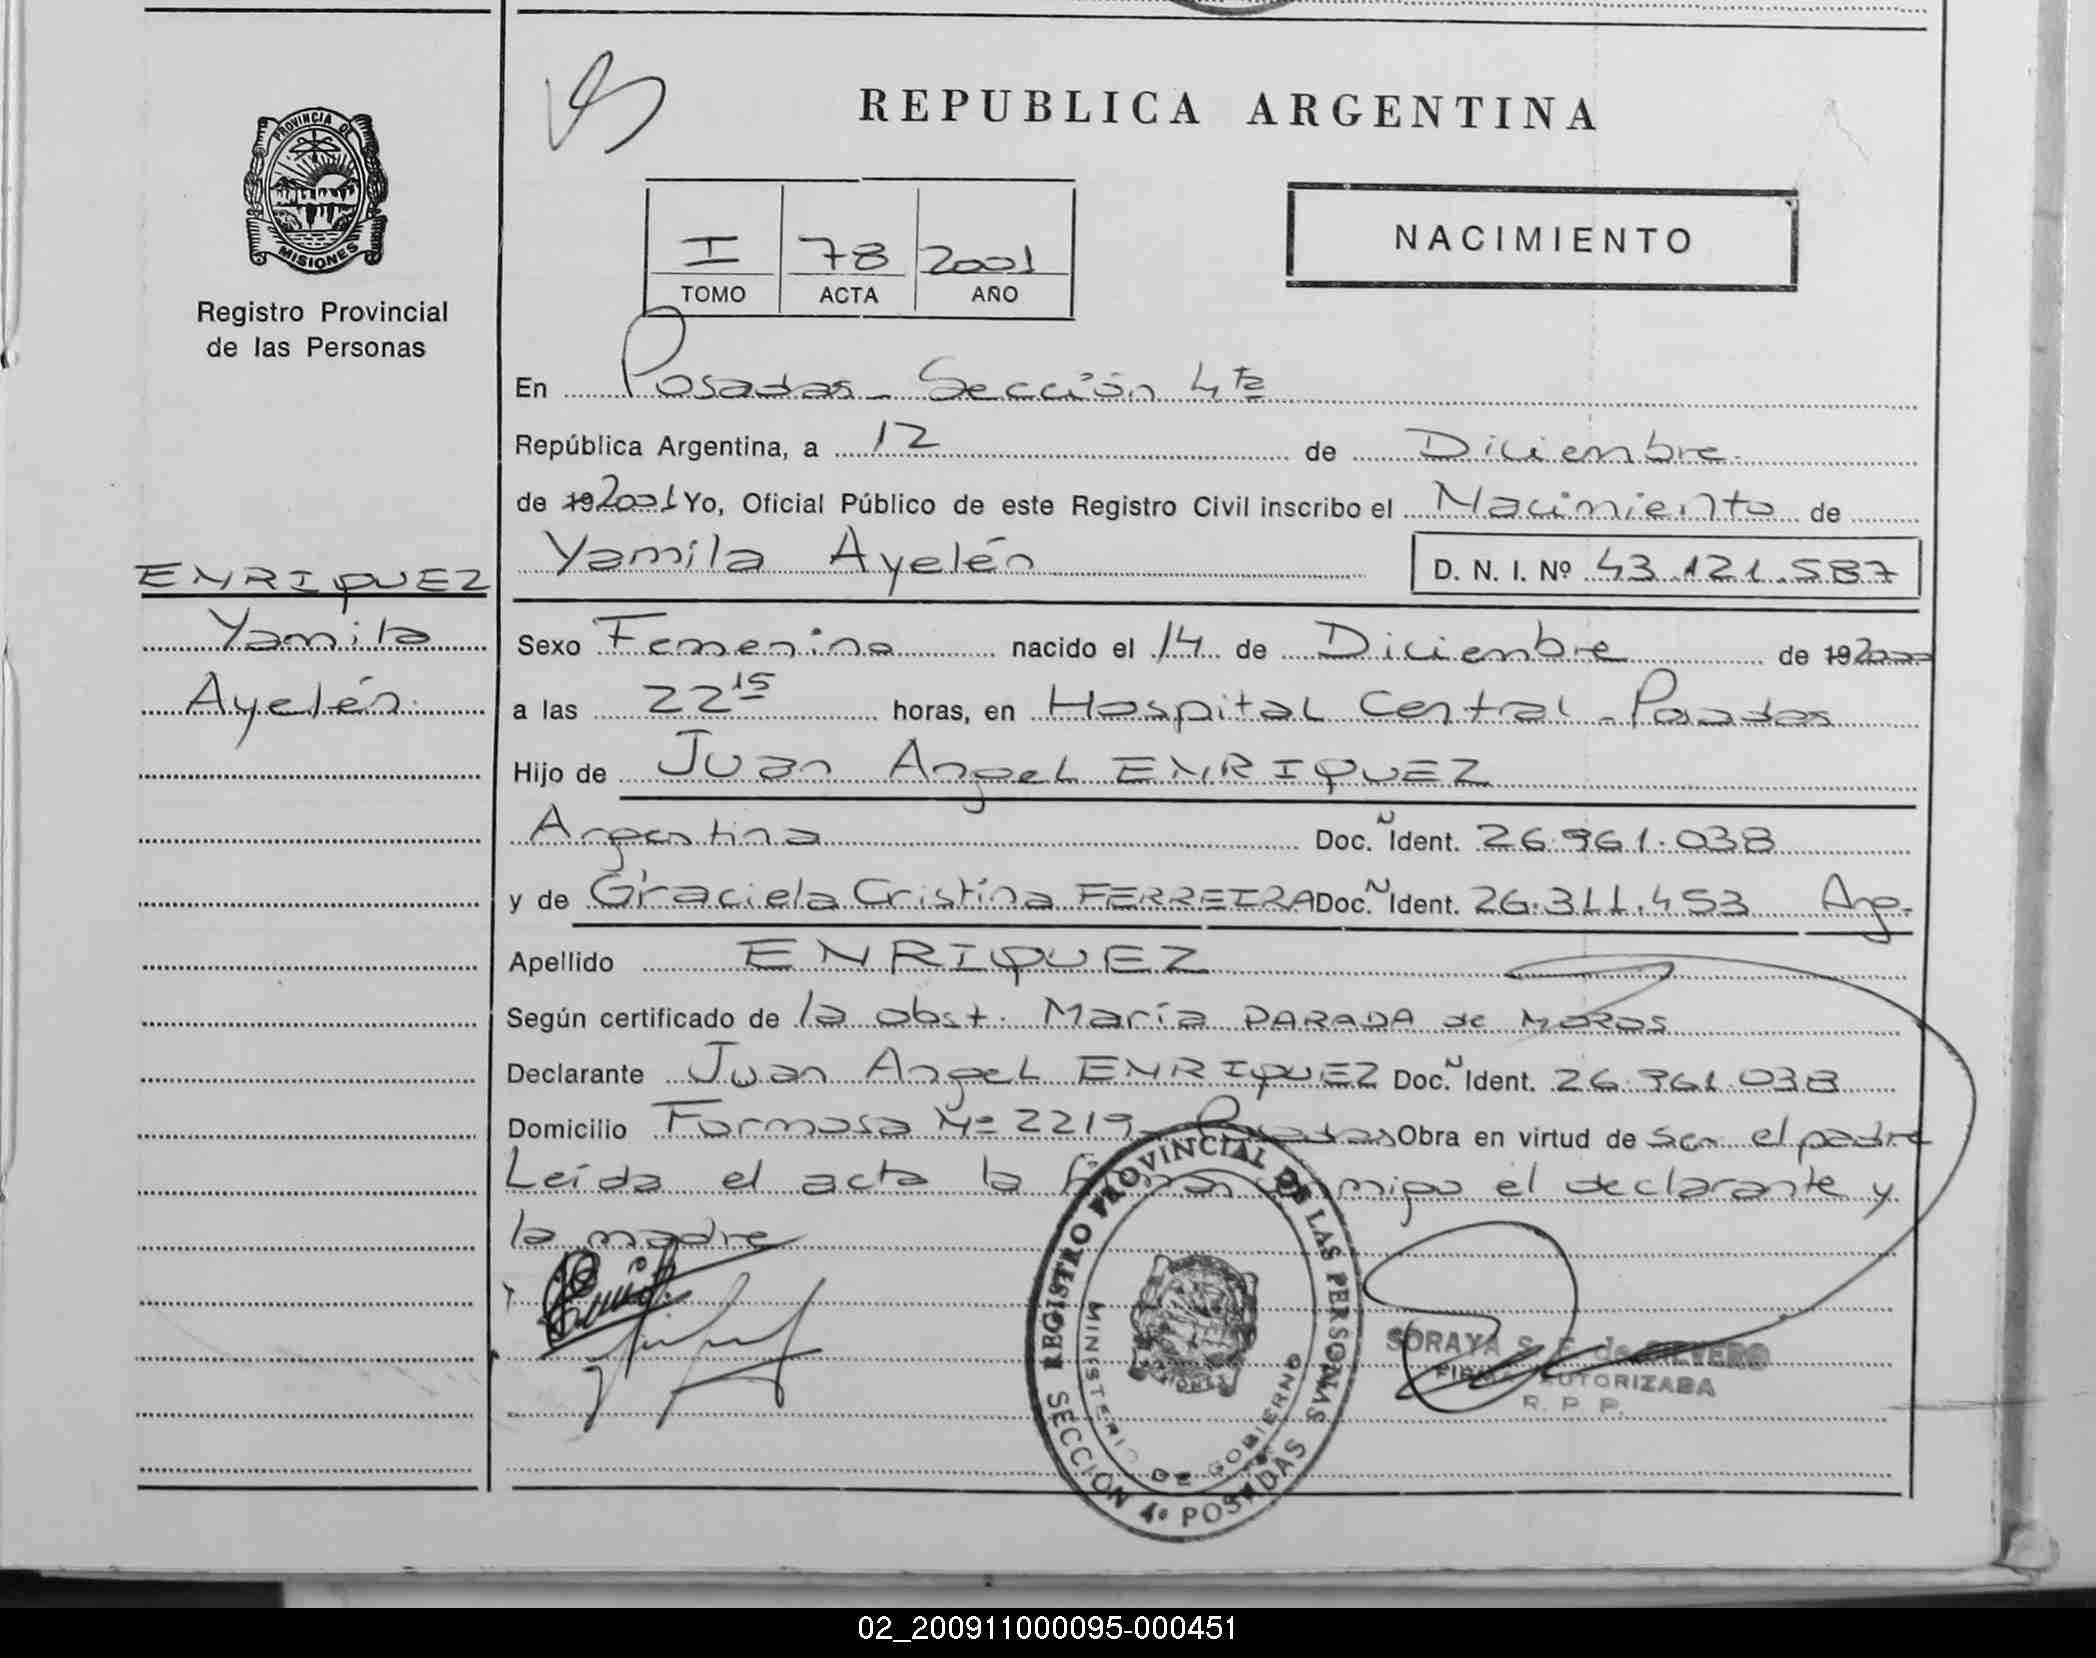 PROVINCIA DE
MISIONES
Registro Provincial
de las Personas
ENRIQUEZ
Yamila
Ayelén.
REPUBLICA ARGENTINA
I 78 2001
TOMO ACTA AÑO
NACIMIENTO
En Posadas - Sección 4ta
República Argentina, a 12 de Diciembre.
de 19 2001 Yo, Oficial Público de este Registro Civil inscribo el Nacimiento de
Yamila Ayelén D. N. I. Nº 43.121.587
Sexo Femenino nacido el 14 de Diciembre de 19 2000
a las 22 15 horas, en Hospital Central - Posadas
Hijo de Juan Angel ENRIQUEZ
Argentina Doc. Ñ Ident. 26.961.038
y de Graciela Cristina FERREIRA Doc. Ñ Ident. 26.311.453 Arg.
Apellido ENRIQUEZ
Según certificado de la obst. María PARADA de MOROS
Declarante Juan Angel ENRIQUEZ Doc. Ñ Ident. 26.961.038
Domicilio Formosa Nº 2219 - Posadas Obra en virtud de ser el padre
Leída el acta la firman conmigo el declarante y
la madre
REGISTRO PROVINCIAL DE LAS PERSONAS
MINISTERIO DE GOBIERNO
SECCION 4º POSADAS
SORAYA S. F. de
FIRMA AUTORIZADA
R. P. P.
02_200911000095-000451